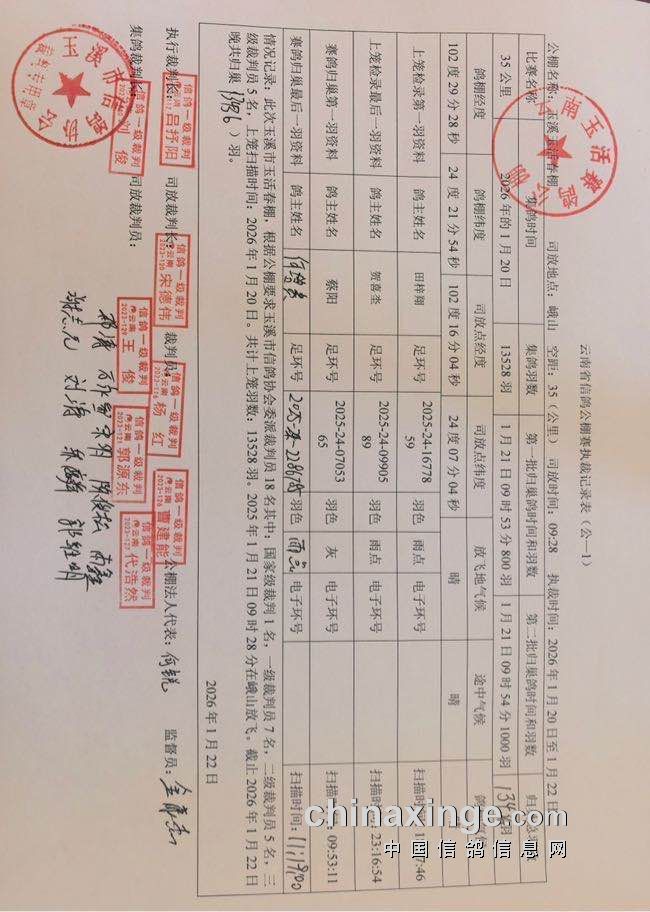 云南省信鸽公棚赛执裁记录表（公—1）
公棚名称：玉溪玉活春棚 司放地点：峨山 空距：35（公里） 司放时间：09:28 执裁时间：2026年1月20日至1月22日
比赛名称 集鸽时间 集鸽羽数 第一批归巢鸽时间和羽数 第二批归巢鸽时间和羽数
35公里 2026年的1月20日 13528羽 1月21日09时53分800羽 1月21日09时54分1000羽
鸽棚经度 鸽棚纬度 司放点经度 司放点纬度 放飞地气候 途中气候
102度29分28秒 24度21分54秒 102度16分04秒 24度07分04秒 晴 晴
上笼检录第一羽资料 鸽主姓名 田梓翔 足环号 2025-24-1677859 羽色 雨点 电子环号
上笼检录最后一羽资料 鸽主姓名 贺喜奎 足环号 2025-24-0990589 羽色 雨点 电子环号 扫描时间：23:16:54
赛鸽归巢第一羽资料 鸽主姓名 蔡阳 足环号 2025-24-0705365 羽色 灰 电子环号 扫描时间：09:53:11
赛鸽归巢最后一羽资料 鸽主姓名 足环号 羽色 电子环号 扫描时间：
情况记录：此次玉溪市玉活春棚，根据公棚要求玉溪市信鸽协会委派裁判员18名其中：国家级裁判1名，一级裁判员7名，二级裁判员5名，三
级裁判员5名，上笼扫描时间：2026年1月20日。共计上笼羽数：13528羽。2025年1月21日09时28分在峨山放飞。截止2026年1月22日
晚共归巢 羽。
2026年1月22日
执行裁判长： 司放裁判长： 裁判员： 公棚法人代表：何锐 监督员：
信鸽一级裁判 吕抒阳
信鸽一级裁判 宋德伟
信鸽一级裁判 杨红
信鸽一级裁判 曹建能
集鸽裁判长： 司放裁判员：
刘俊
信鸽一级裁判 王俊
信鸽一级裁判 郭源东
信鸽一级裁判 代浩然
chinaxinge.com
中国信鸽信息网